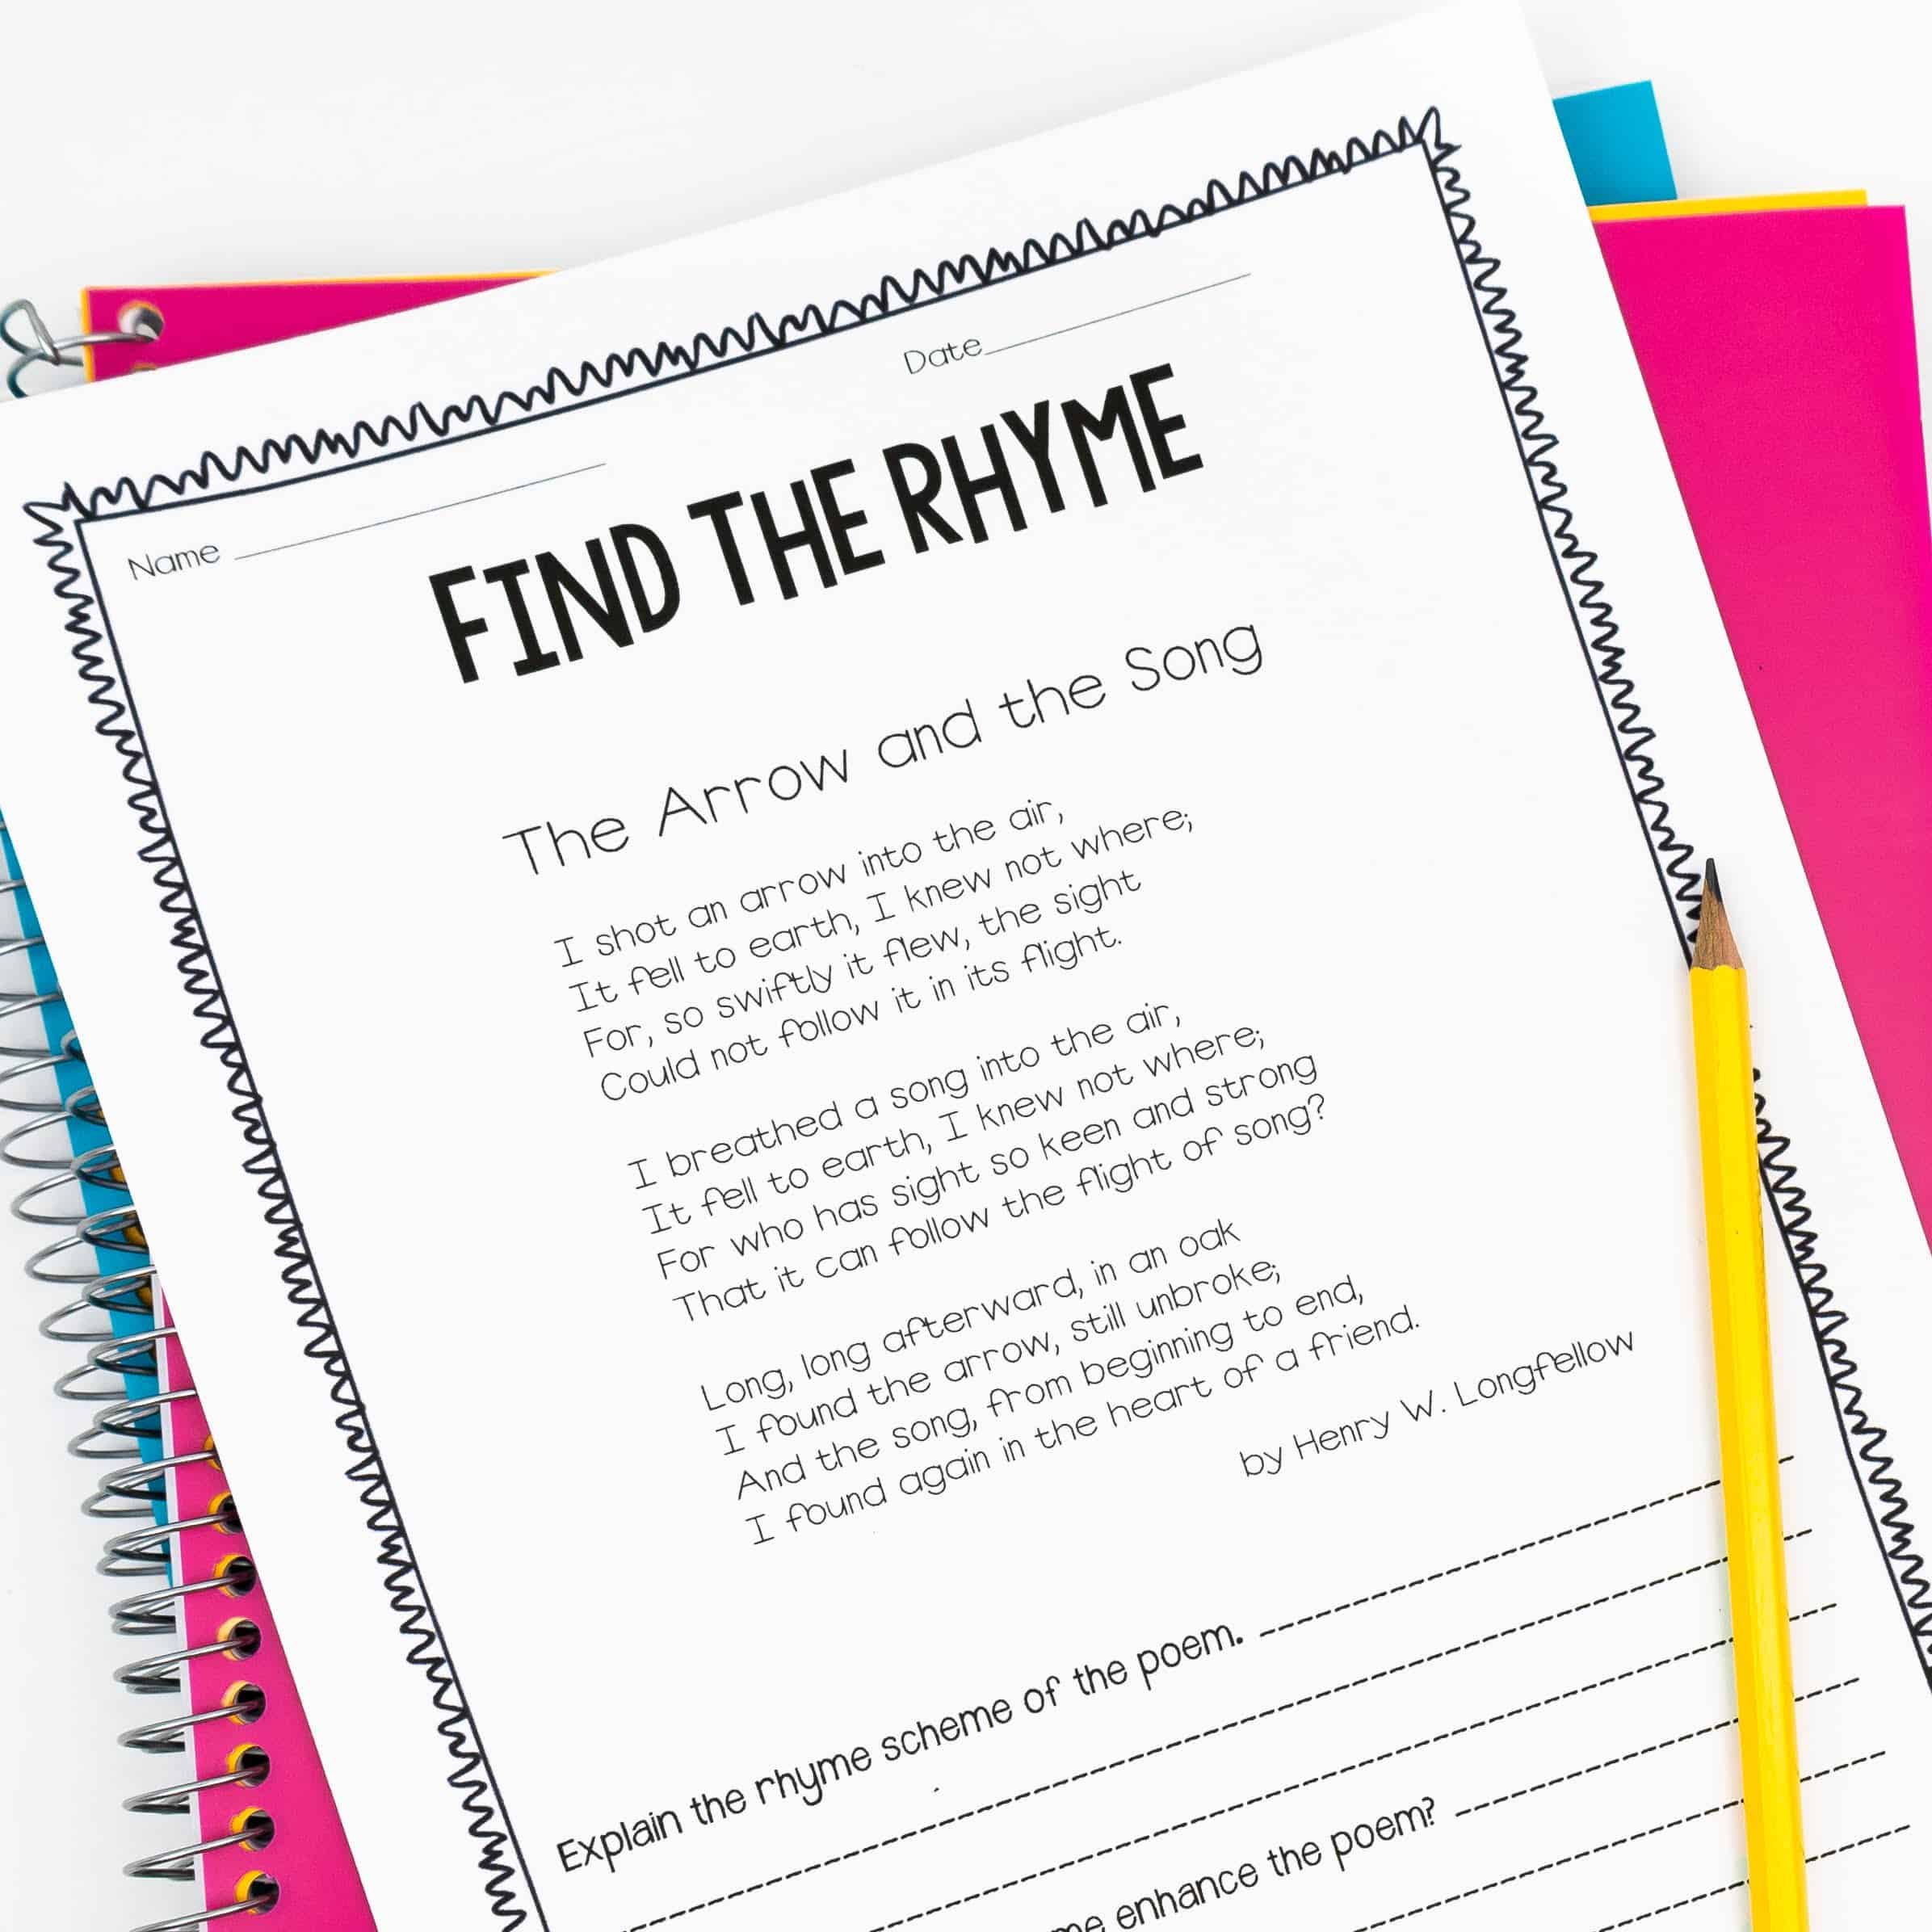 Name
Date
FIND THE RHYME
The Arrow and the Song
I shot an arrow into the air,
It fell to earth, I knew not where;
For, so swiftly it flew, the sight
Could not follow it in its flight.
I breathed a song into the air,
It fell to earth, I knew not where;
For who has sight so keen and strong
That it can follow the flight of song?
Long, long afterward, in an oak
I found the arrow, still unbroke;
And the song, from beginning to end,
I found again in the heart of a friend.
by Henry W. Longfellow
Explain the rhyme scheme of the poem.
enhance the poem?